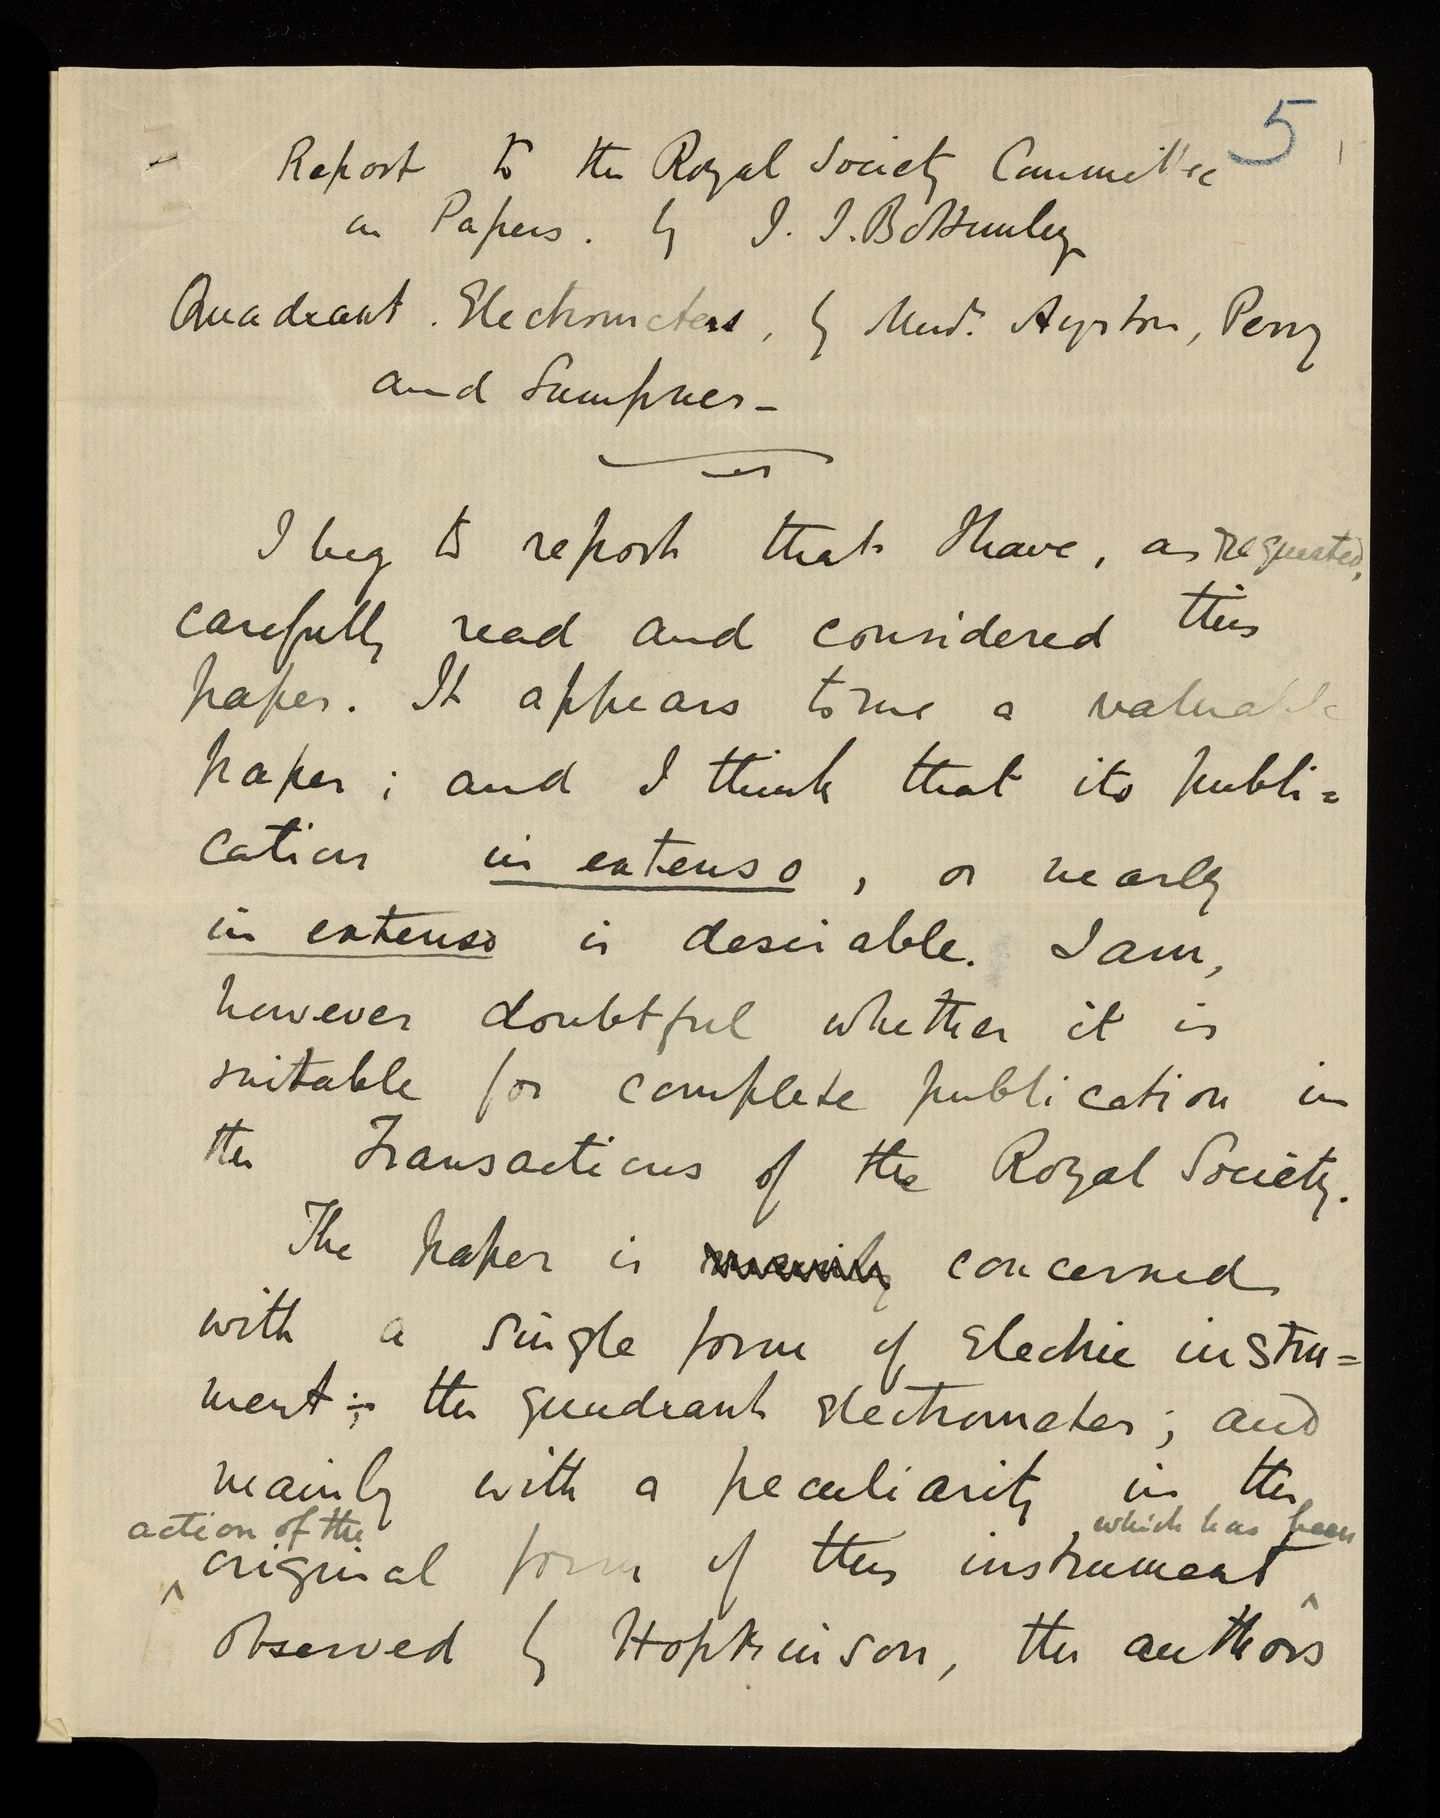 5
Report to the Royal Society Committee
on Papers. by J. T. Bottomley
Quadrant Electrometers, by Ayrton, Perry
and Sumpner -
I beg to report that I have, as requested,
carefully read and considered this
paper. It appears to me a valuable
paper; and I think that its publi=
cation in extenso, or nearly
in extenso is desirable. I am,
however doubtful whether it is
suitable for complete publication in
the Transactions of the Royal Society.
The paper is concerned
with a single form of Electric instru=
ment; the quadrant electrometer; and
mainly with a peculiarity in the
action of the original form of this instrument which has been
observed by Hopkinson, the authors